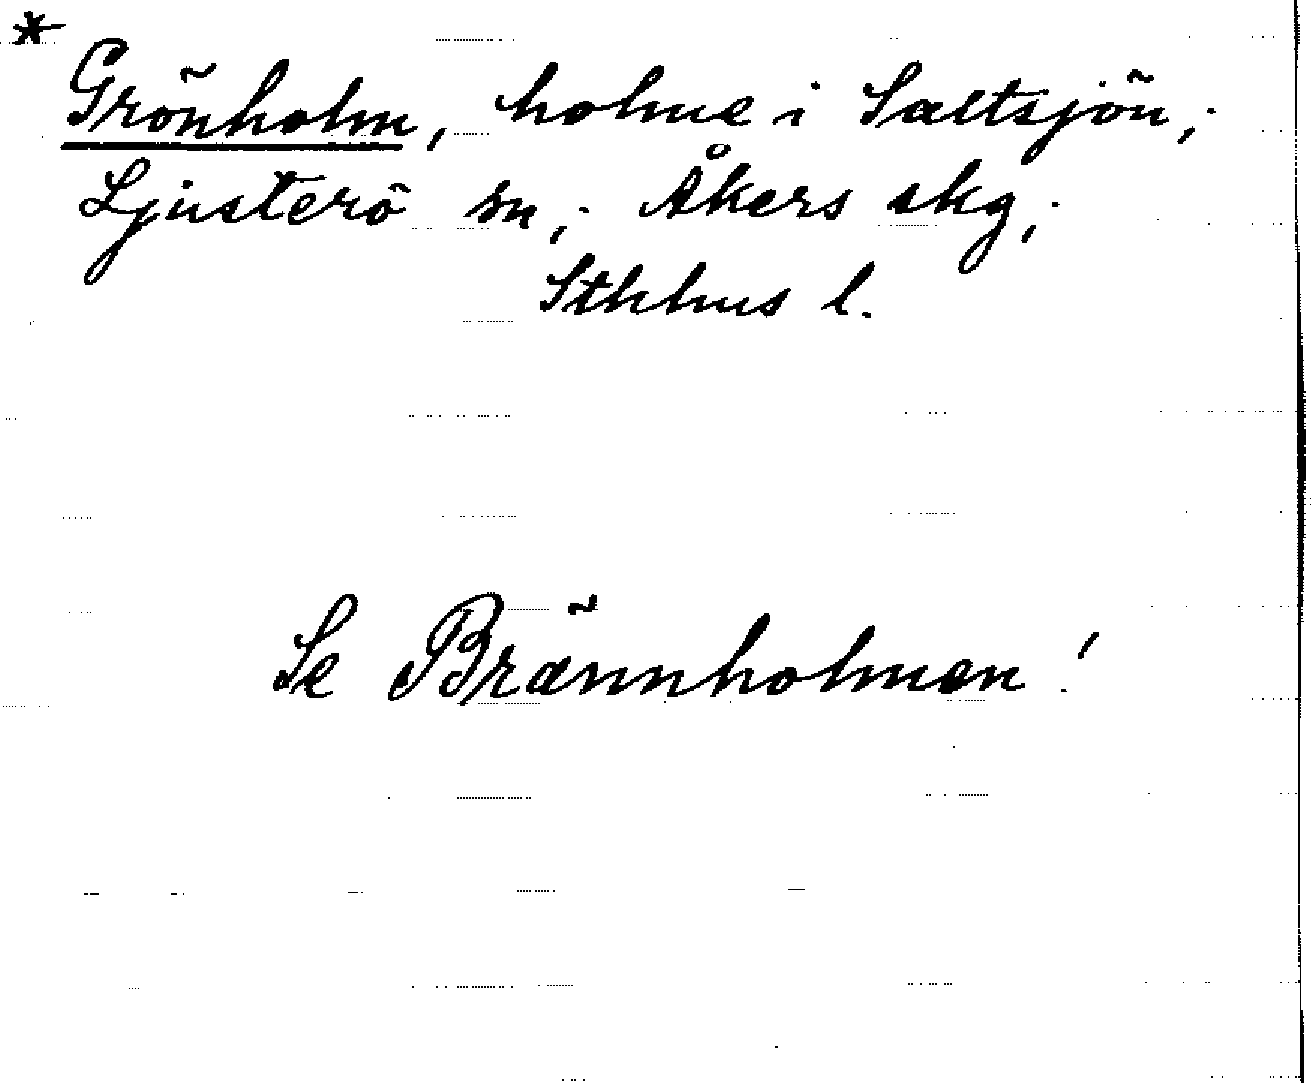 * Grönholm, holme i Saltsjön,;
Ljusterö sn,; Åkers skg,;
Sthhus l.
Se Brännholmen!